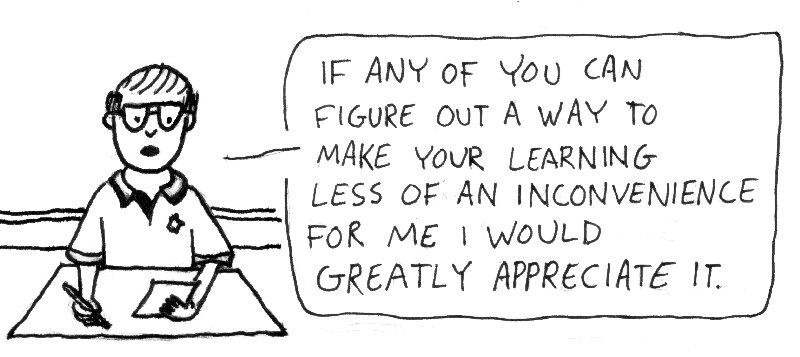 IF ANY OF YOU CAN
FIGURE OUT A WAY TO
MAKE YOUR LEARNING
LESS OF AN INCONVENIENCE
FOR ME I WOULD
GREATLY APPRECIATE IT.